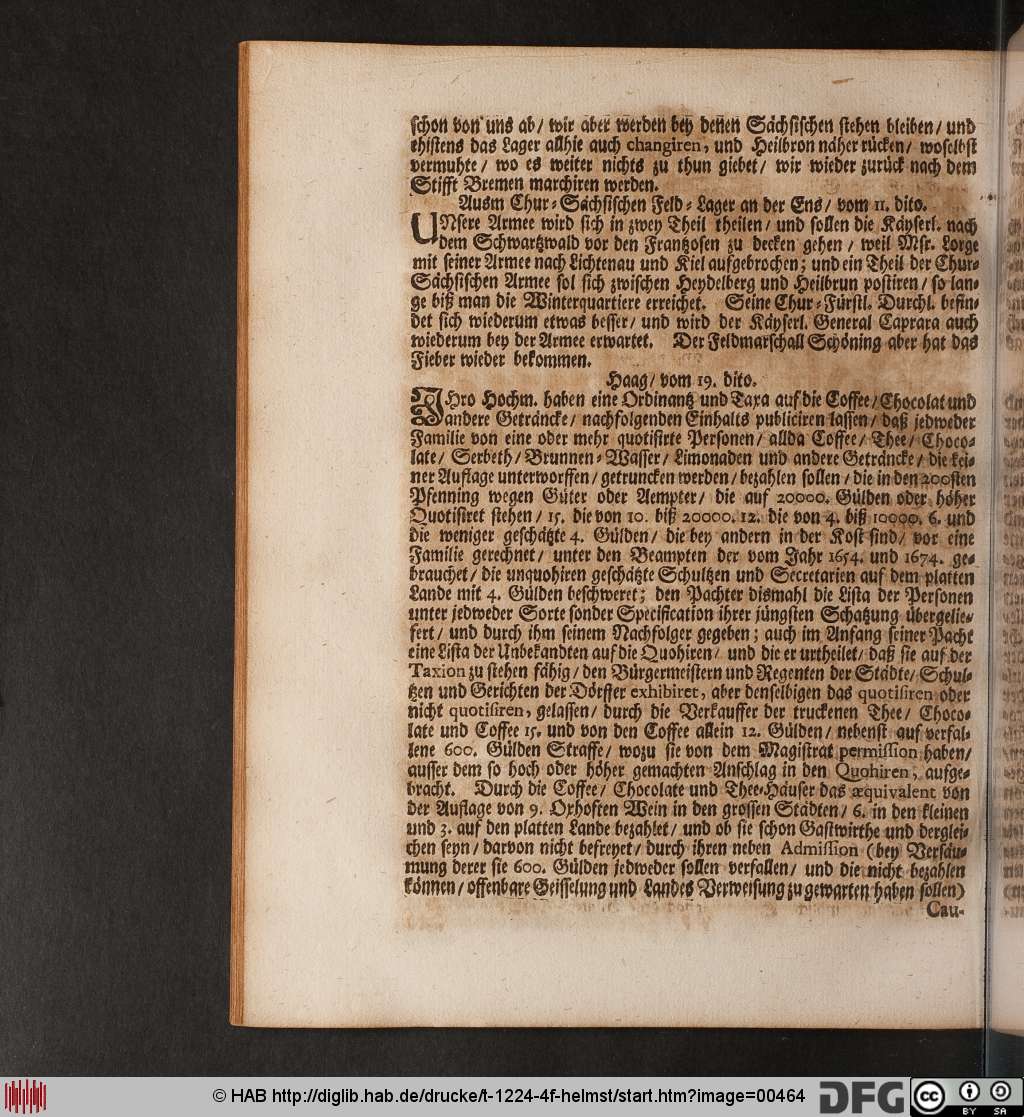 schon von uns ab / wir aber werden bey denen Sächsischen stehen bleiben / und
ehistens das Lager allhie auch changiren, und Heilbron näher rücken / woselbst
vermuhte / wo es weiter nichts zu thun giebet / wir wieder zurück nach dem
Stifft Bremen marchiren werden.
Ausm Chur-Sächsischen Feld-Lager an der Ens / vom 11. dito.
UNsere Armee wird sich in zwey Theil theilen / und sollen die Käyserl. nach
dem Schwartzwald vor den Frantzosen zu decken gehen / weil Msr. Lorge
mit seiner Armee nach Lichtenau und Kiel aufgebrochen; und ein Theil der Chur-
Sächsischen Armee sol sich zwischen Heydelberg und Heilbrun postiren / so lan-
ge biß man die Winterquartiere erreichet. Seine Chur-Fürstl. Durchl. befin-
det sich wiederum etwas besser / und wird der Käyserl. General Caprara auch
wiederum bey der Armee erwartet. Der Feldmarschall Schöning aber hat das
Fieber wieder bekommen.
Haag / vom 19. dito.
IHro Hochm. haben eine Ordinantz und Taxa auf die Coffee / Chocolat und
andere Geträncke / nachfolgenden Einhalts publiciren lassen / daß jedweder
Familie von eine oder mehr quotisirte Personen / allda Coffee / Thee / Choco-
late / Serbeth / Brunnen-Wasser / Limonaden und andere Geträncke / die kei-
ner Auflage unterworffen / getruncken werden / bezahlen sollen / die in den 200sten
Pfenning wegen Güter oder Aempter / die auf 20000. Gülden oder höher
Quotisiret stehen / 15. die von 10. biß 20000. 12. die von 4. biß 10000. 6. und
die weniger geschätzte 4. Gülden / die bey andern in der Kost sind / vor eine
Familie gerechnet / unter den Beampten der vom Jahr 1654. und 1674. ge-
brauchet / die unquohiren geschätzte Schultzen und Secretarien auf dem platten
Lande mit 4. Gülden beschweret; den Pachter dismahl die Lista der Personen
unter jedweder Sorte sonder Specification ihrer jüngsten Schatzung übergelie-
fert / und durch ihm seinem Nachfolger gegeben; auch im Anfang seiner Pacht
eine Lista der Unbekandten auf die Quohiren / und die er urtheilet / daß sie auf der
Taxion zu stehen fähig / den Bürgermeistern und Regenten der Städte / Schul-
tzen und Gerichten der Dörffer exhibiret, aber denselbigen das quotisiren oder
nicht quotisiren, gelassen / durch die Verkauffer der truckenen Thee / Choco-
late und Coffee 15. und von den Coffee allein 12. Gülden / nebenst auf verfal-
lene 600. Gülden Straffe / wozu sie von dem Magistrat permission haben /
ausser dem so hoch oder höher gemachten Anschlag in den Quohiren, aufge-
bracht. Durch die Coffee / Chocolate und Thee-Häuser das æquivalent von
der Auflage von 9. Oxhoften Wein in den grossen Städten / 6. in den kleinen
und 3. auf den platten Lande bezahlet / und ob sie schon Gastwirthe und derglei-
chen seyn / darvon nicht befreyet / durch ihren neben Admission (bey Versäu-
mung derer sie 600. Gülden jedweder sollen verfallen / und die nicht bezahlen
können / offenbare Geisselung und Landes Verweisung zu gewarten haben sollen)
Cau-
© HAB http://diglib.hab.de/drucke/t-1224-4f-helmst/start.htm?image=00464
DFG
cc
BY
SA